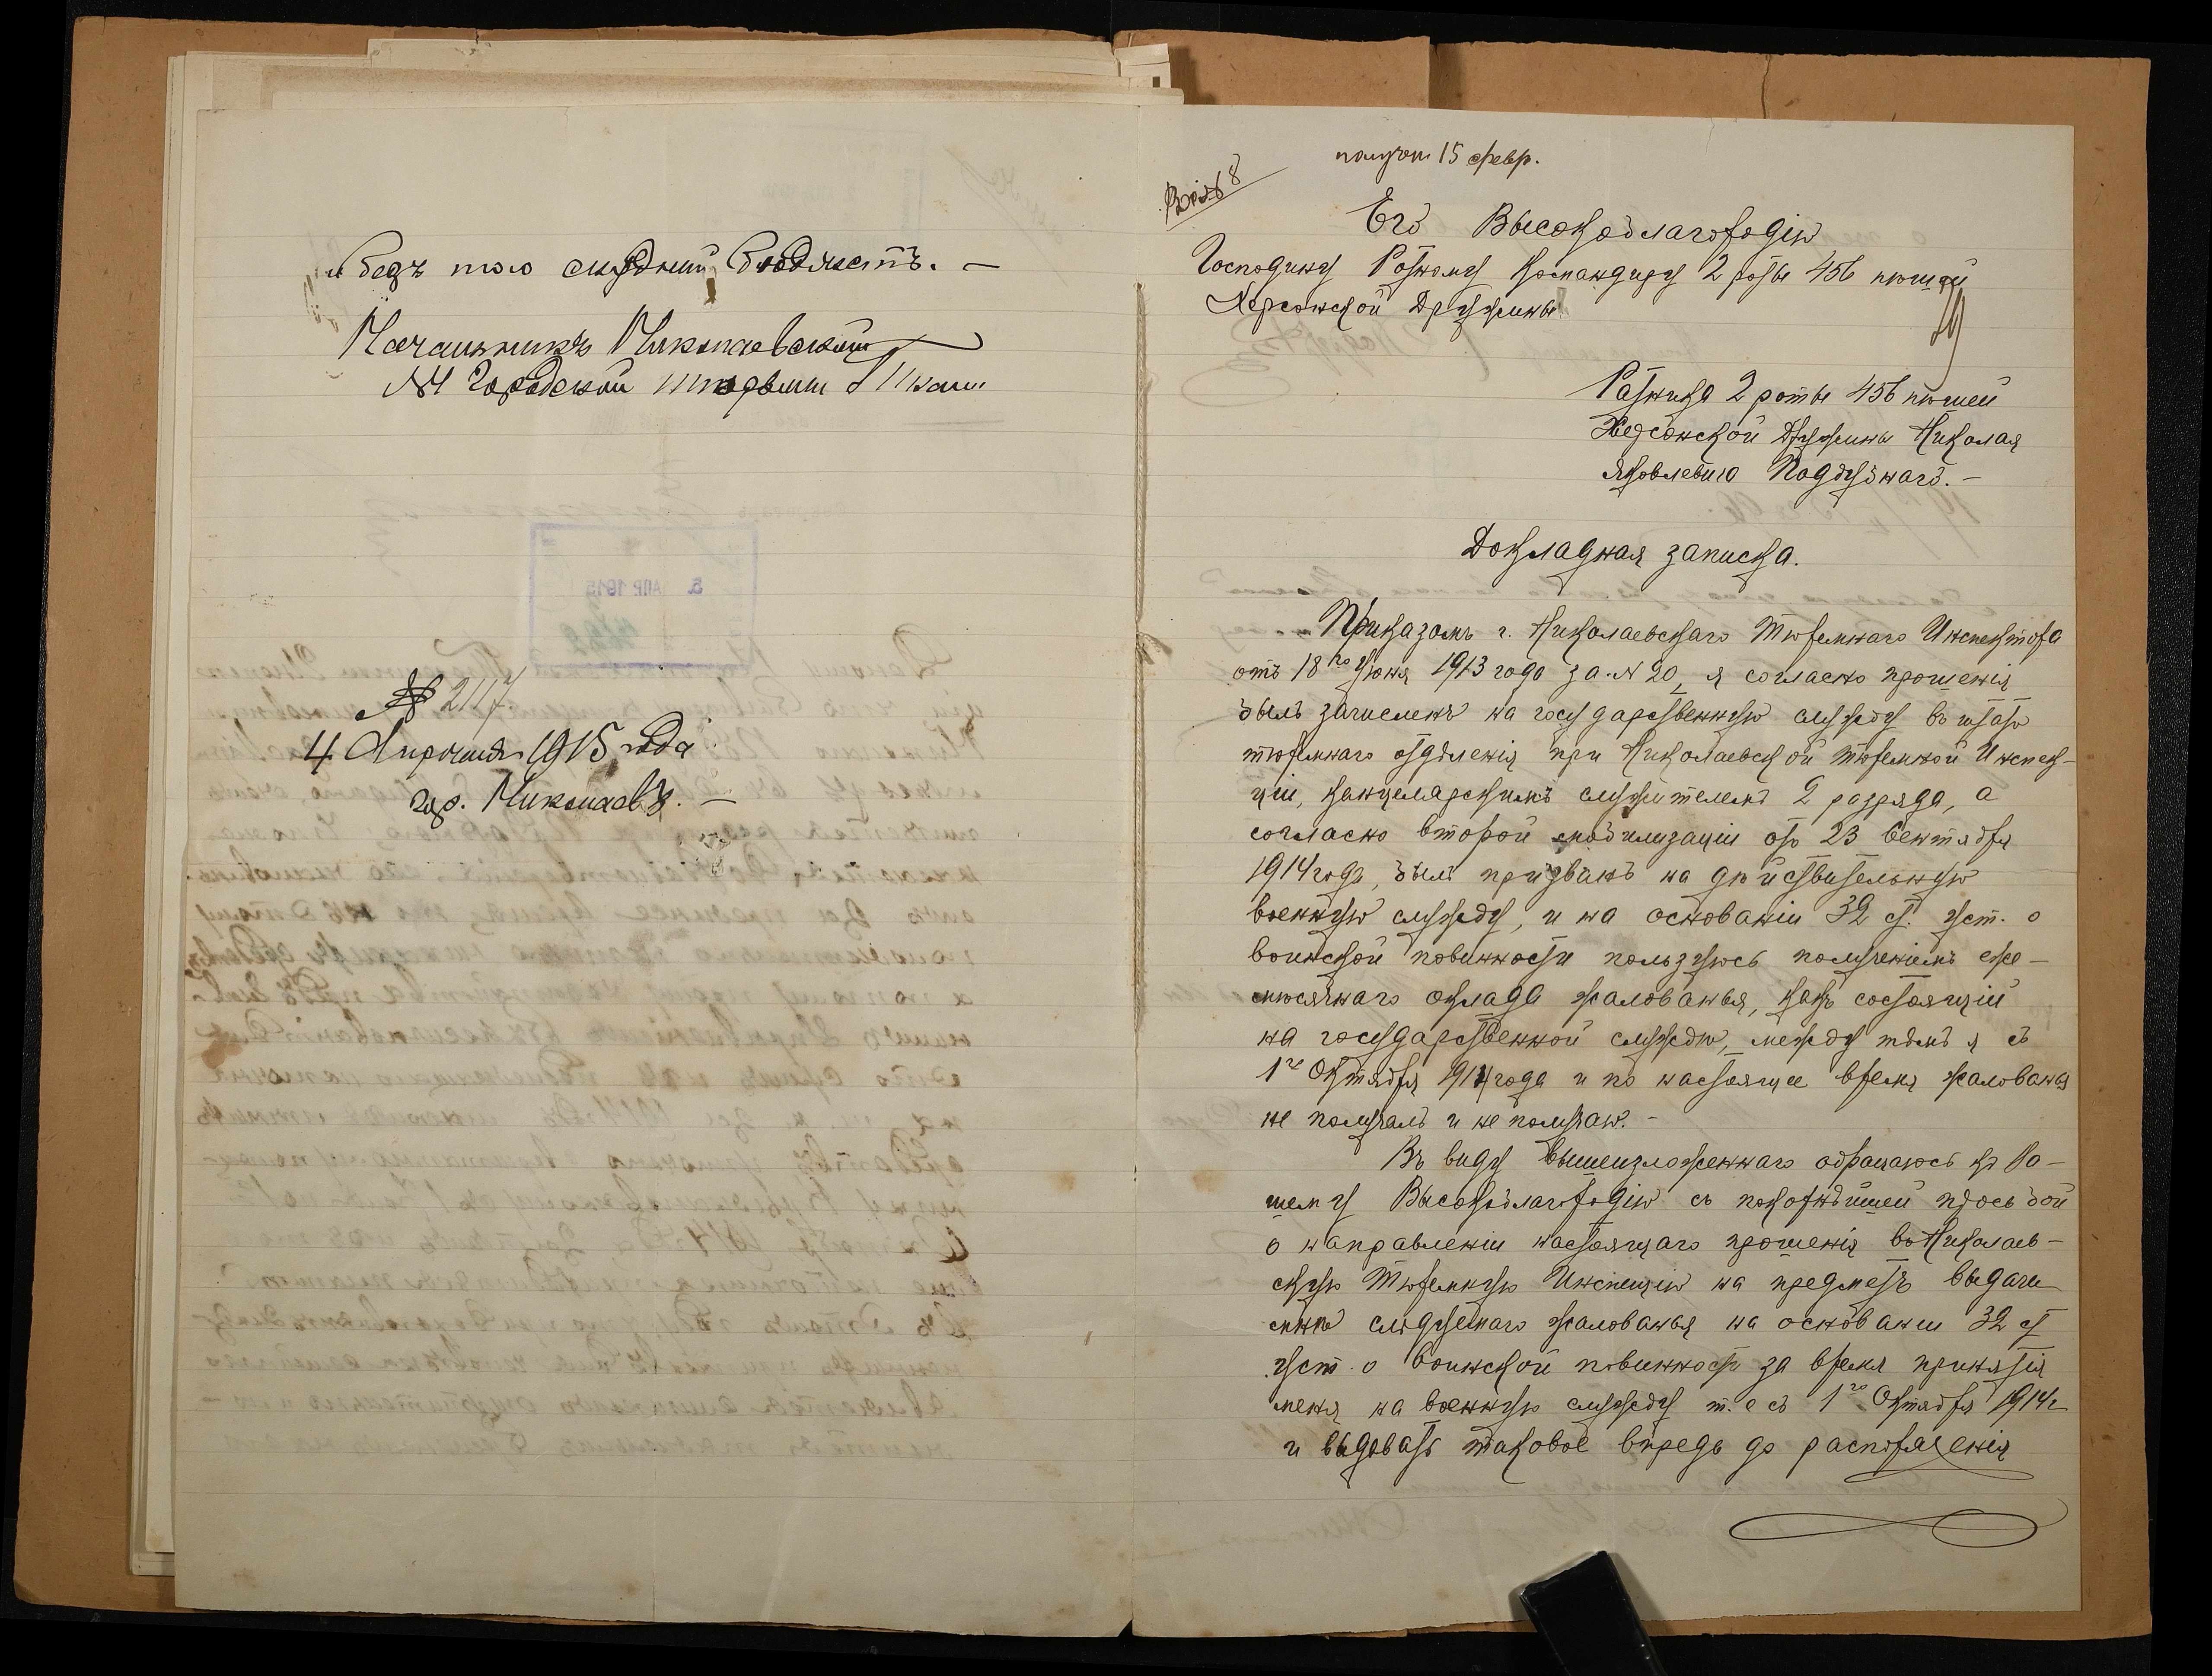 и безъ того скудный бюджетъ. —
Начальникъ Николаевской
№1 Городской тюрьмы
№ 2117.
4 Апрѣля 1915 года
гор. Николаевъ. —
5 АПР 1915
получен 15 февр.
Его Высокоблагородію
Господину Ротному Командиру 2 роты 456 пѣшей
Херсонской Дружины
Ратника 2 роты 456 пѣшей
Херсонской Дружины Николая
Яковлевича Поддубнаго. —
Докладная записка.
Приказомъ г. Николаевскаго Тюремнаго Инспектора
отъ 18го Іюня 1913 года за № 20, я согласно прошенія
былъ зачисленъ на государственную службу въ штатъ
тюремнаго отдѣленія при Николаевской тюремной Инспек-
ціи, канцелярскимъ служителемъ 2 разряда, а
согласно второй мобилизаціи отъ 23 Сентября
1914 года, былъ призванъ на дѣйствительную
военную службу, и на основаніи 32 ст. уст. о
воинской повинности пользуюсь полученіемъ еже-
мѣсячнаго оклада жалованья, какъ состоящій
на государственной службѣ, между тѣмъ я съ
1го Октября 1914 года и по настоящее время жалованья
не получалъ и не получаю. -
Въ виду вышеизложеннаго обращаюсь къ Ва-
шему Высокоблагородію съ покорнѣйшей просьбой
о направленіи настоящаго прошенія въ Николаев-
скую Тюремную Инспецію на предметъ выдачи
мнѣ слѣдуемаго жалованья на основаніи 32 ст
уст. о воинской повинности за время принятія
меня на военную службу т. е съ 1го Октября 1914 г
и выдавать таковое впредь до распоряженія